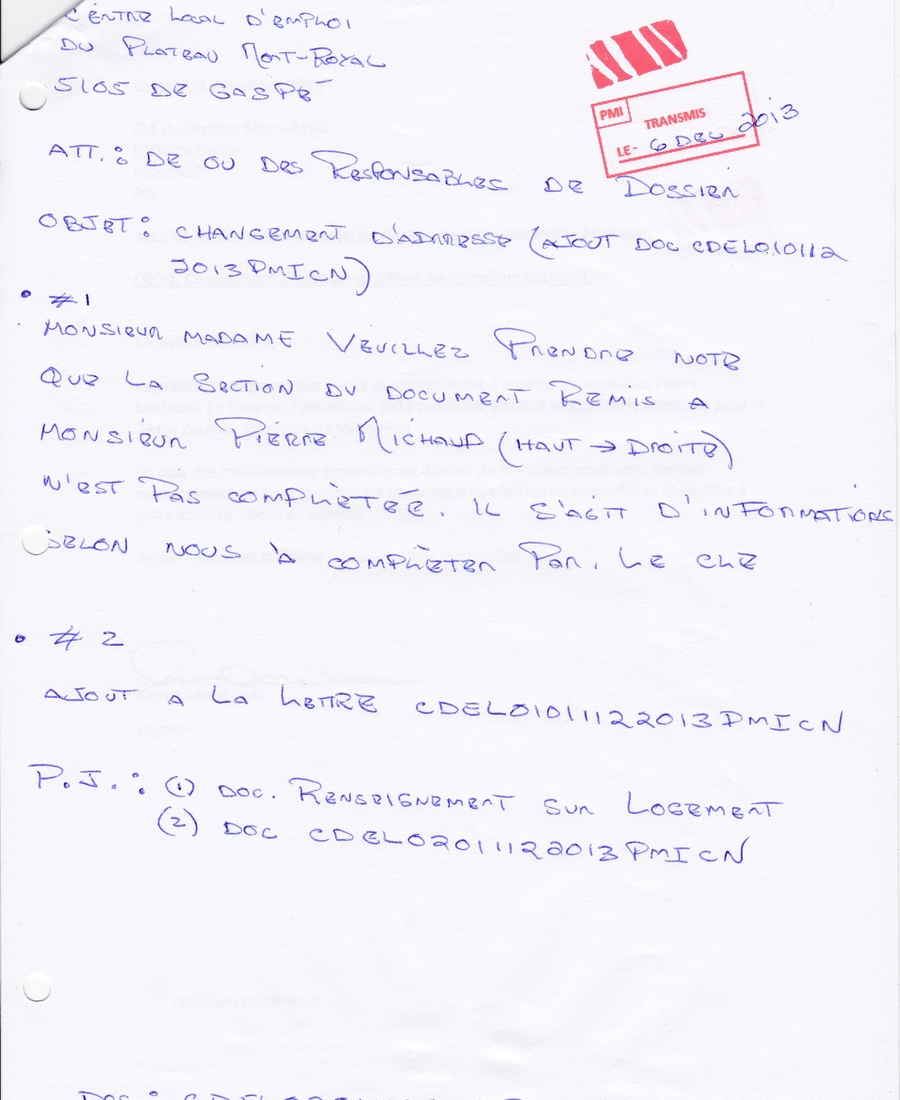 CENTRE LOCAL D'EMPLOI
DU PLATEAU MONT-ROYAL
5105 DE GASPÉ
PMI
TRANSMIS
LE- 6 DEC 2013
ATT.: DE OU DES RESPONSABLES DE DOSSIER
OBJET: CHANGEMENT D'ADRESSE (AJOUT DOC CDEL010112
2013PMICN)
• #1
MONSIEUR MADAME VEUILLEZ PRENDRE NOTE
QUE LA SECTION DU DOCUMENT REMIS A
MONSIEUR PIERRE MICHAUD (HAUT → DROITE)
N'EST PAS COMPLÈTÉE. IL S'AGIT D INFORMATIONS
SELON NOUS À COMPLÈTER PAR. LE CLE
• # 2
AJOUT A LA LETTRE CDEL0101122013PMICN
P.J.: (1) DOC. RENSEIGNEMENT SUR LOGEMENT
(2) DOC CDEL02011122013PMICN